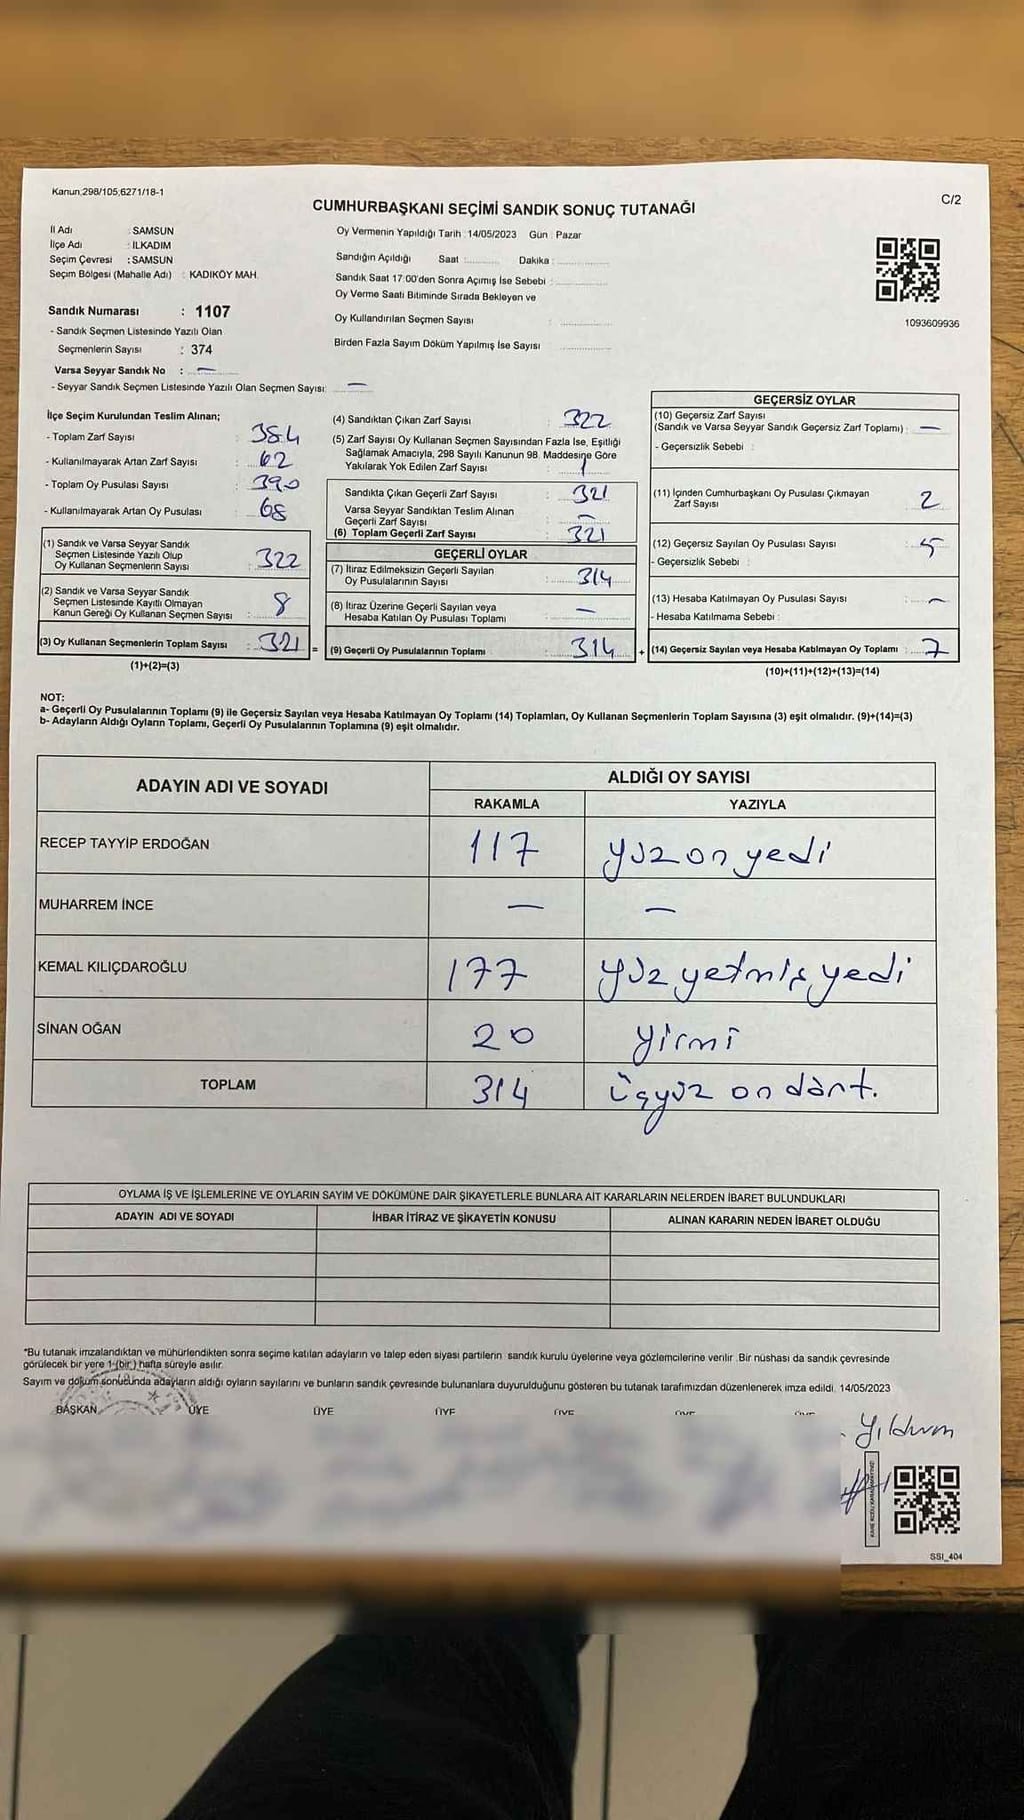 Kanun;298/105,6271/18-1
C/2
CUMHURBAŞKANI SEÇİMİ SANDIK SONUÇ TUTANAĞI
İl Adı : SAMSUN
İlçe Adı : İLKADIM
Seçim Çevresi : SAMSUN
Seçim Bölgesi (Mahalle Adı) : KADIKÖY MAH.
Sandık Numarası : 1107
- Sandık Seçmen Listesinde Yazılı Olan
Seçmenlerin Sayısı : 374
Varsa Seyyar Sandık No : —
- Seyyar Sandık Seçmen Listesinde Yazılı Olan Seçmen Sayısı: —
Oy Vermenin Yapıldığı Tarih : 14/05/2023 Gün : Pazar
Sandığın Açıldığı Saat :.......... Dakika :..............
Sandık Saat 17:00'den Sonra Açımış İse Sebebi :..............
Oy Verme Saati Bitiminde Sırada Bekleyen ve
Oy Kullandırılan Seçmen Sayısı : ..............
Birden Fazla Sayım Döküm Yapılmış İse Sayısı : ..............
1093609936
İlçe Seçim Kurulundan Teslim Alınan;
- Toplam Zarf Sayısı : 384
- Kullanılmayarak Artan Zarf Sayısı : 62
- Toplam Oy Pusulası Sayısı : 390
- Kullanılmayarak Artan Oy Pusulası : 68
(1) Sandık ve Varsa Seyyar Sandık
Seçmen Listesinde Yazılı Olup
Oy Kullanan Seçmenlerin Sayısı : 322
(2) Sandık ve Varsa Seyyar Sandık
Seçmen Listesinde Kayıtlı Olmayan
Kanun Gereği Oy Kullanan Seçmen Sayısı : 8
(3) Oy Kullanan Seçmenlerin Toplam Sayısı : 321 =
(1)+(2)=(3)
(4) Sandıktan Çıkan Zarf Sayısı : 322
(5) Zarf Sayısı Oy Kullanan Seçmen Sayısından Fazla İse, Eşitliği
Sağlamak Amacıyla, 298 Sayılı Kanunun 98. Maddesine Göre
Yakılarak Yok Edilen Zarf Sayısı : 1
Sandıkta Çıkan Geçerli Zarf Sayısı : 321
Varsa Seyyar Sandıktan Teslim Alınan
Geçerli Zarf Sayısı : —
(6) Toplam Geçerli Zarf Sayısı : 321
GEÇERLİ OYLAR
(7) İtiraz Edilmeksizin Geçerli Sayılan
Oy Pusulalarının Sayısı : 314
(8) İtiraz Üzerine Geçerli Sayılan veya
Hesaba Katılan Oy Pusulası Toplamı : —
(9) Geçerli Oy Pusulalarının Toplamı : 314 +
GEÇERSİZ OYLAR
(10) Geçersiz Zarf Sayısı
(Sandık ve Varsa Seyyar Sandık Geçersiz Zarf Toplamı) : —
- Geçersizlik Sebebi :
(11) İçinden Cumhurbaşkanı Oy Pusulası Çıkmayan
Zarf Sayısı : 2
(12) Geçersiz Sayılan Oy Pusulası Sayısı : 5
- Geçersizlik Sebebi :
(13) Hesaba Katılmayan Oy Pusulası Sayısı : —
- Hesaba Katılmama Sebebi :
(14) Geçersiz Sayılan veya Hesaba Katılmayan Oy Toplamı : 7
(10)+(11)+(12)+(13)=(14)
NOT:
a- Geçerli Oy Pusulalarının Toplamı (9) ile Geçersiz Sayılan veya Hesaba Katılmayan Oy Toplamı (14) Toplamları, Oy Kullanan Seçmenlerin Toplam Sayısına (3) eşit olmalıdır. (9)+(14)=(3)
b- Adayların Aldığı Oyların Toplamı, Geçerli Oy Pusulalarının Toplamına (9) eşit olmalıdır.
ADAYIN ADI VE SOYADI ALDIĞI OY SAYISI
RAKAMLA YAZIYLA
RECEP TAYYİP ERDOĞAN 117 yüz on yedi
MUHARREM İNCE — —
KEMAL KILIÇDAROĞLU 177 yüz yetmiş yedi
SİNAN OĞAN 20 yirmi
TOPLAM 314 üçyüz on dört.
OYLAMA İŞ VE İŞLEMLERİNE VE OYLARIN SAYIM VE DÖKÜMÜNE DAİR ŞİKAYETLERLE BUNLARA AİT KARARLARIN NELERDEN İBARET BULUNDUKLARI
ADAYIN ADI VE SOYADI İHBAR İTİRAZ VE ŞİKAYETİN KONUSU ALINAN KARARIN NEDEN İBARET OLDUĞU
*Bu tutanak imzalandıktan ve mühürlendikten sonra seçime katılan adayların ve talep eden siyasi partilerin sandık kurulu üyelerine veya gözlemcilerine verilir. Bir nüshası da sandık çevresinde
görülecek bir yere 1 (bir) hafta süreyle asılır.
Sayım ve döküm sonucunda adayların aldığı oyların sayılarını ve bunların sandık çevresinde bulunanlara duyurulduğunu gösteren bu tutanak tarafımızdan düzenlenerek imza edildi. 14/05/2023
BAŞKAN ÜYE ÜYE ÜYE ÜYE ÜYE ÜYE
Yıldırım
SSI_404